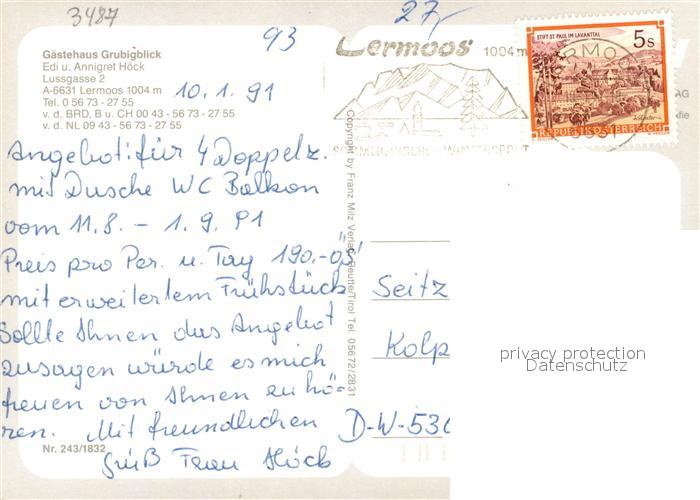 3487
27,-
93
Gästehaus Grubigblick
Edi u. Annigret Höck
Lussgasse 2
A-6631 Lermoos 1004 m
Tel. 0 56 73 - 27 55
v. d. BRD, B u. CH 00 43 - 56 73 - 27 55
v. d. NL 09 43 - 56 73 - 27 55
10.1.91
Angebot: für 4 Doppelz.
mit Dusche WC Balkon
vom 11.8. - 1.9.91
Preis pro Per. u. Tag 190.-öS
mit erweitertem Frühstück
Sollte Ihnen das Angebot
zusagen würde es mich
freuen von Ihnen zu hö-
ren. Mit freundlichen
Gruß Frau Höck
Nr. 243/1832
Copyright by Franz Milz Verlag Reutte/Tirol Tel. 05672/2831
Lermoos 1004 m
STIFT ST. PAUL IM LAVANTTAL
5 S
REPUBLIK ÖSTERREICH
AG
fie
Seitz
Kolp
D-W-530
privacy protection
Datenschutz